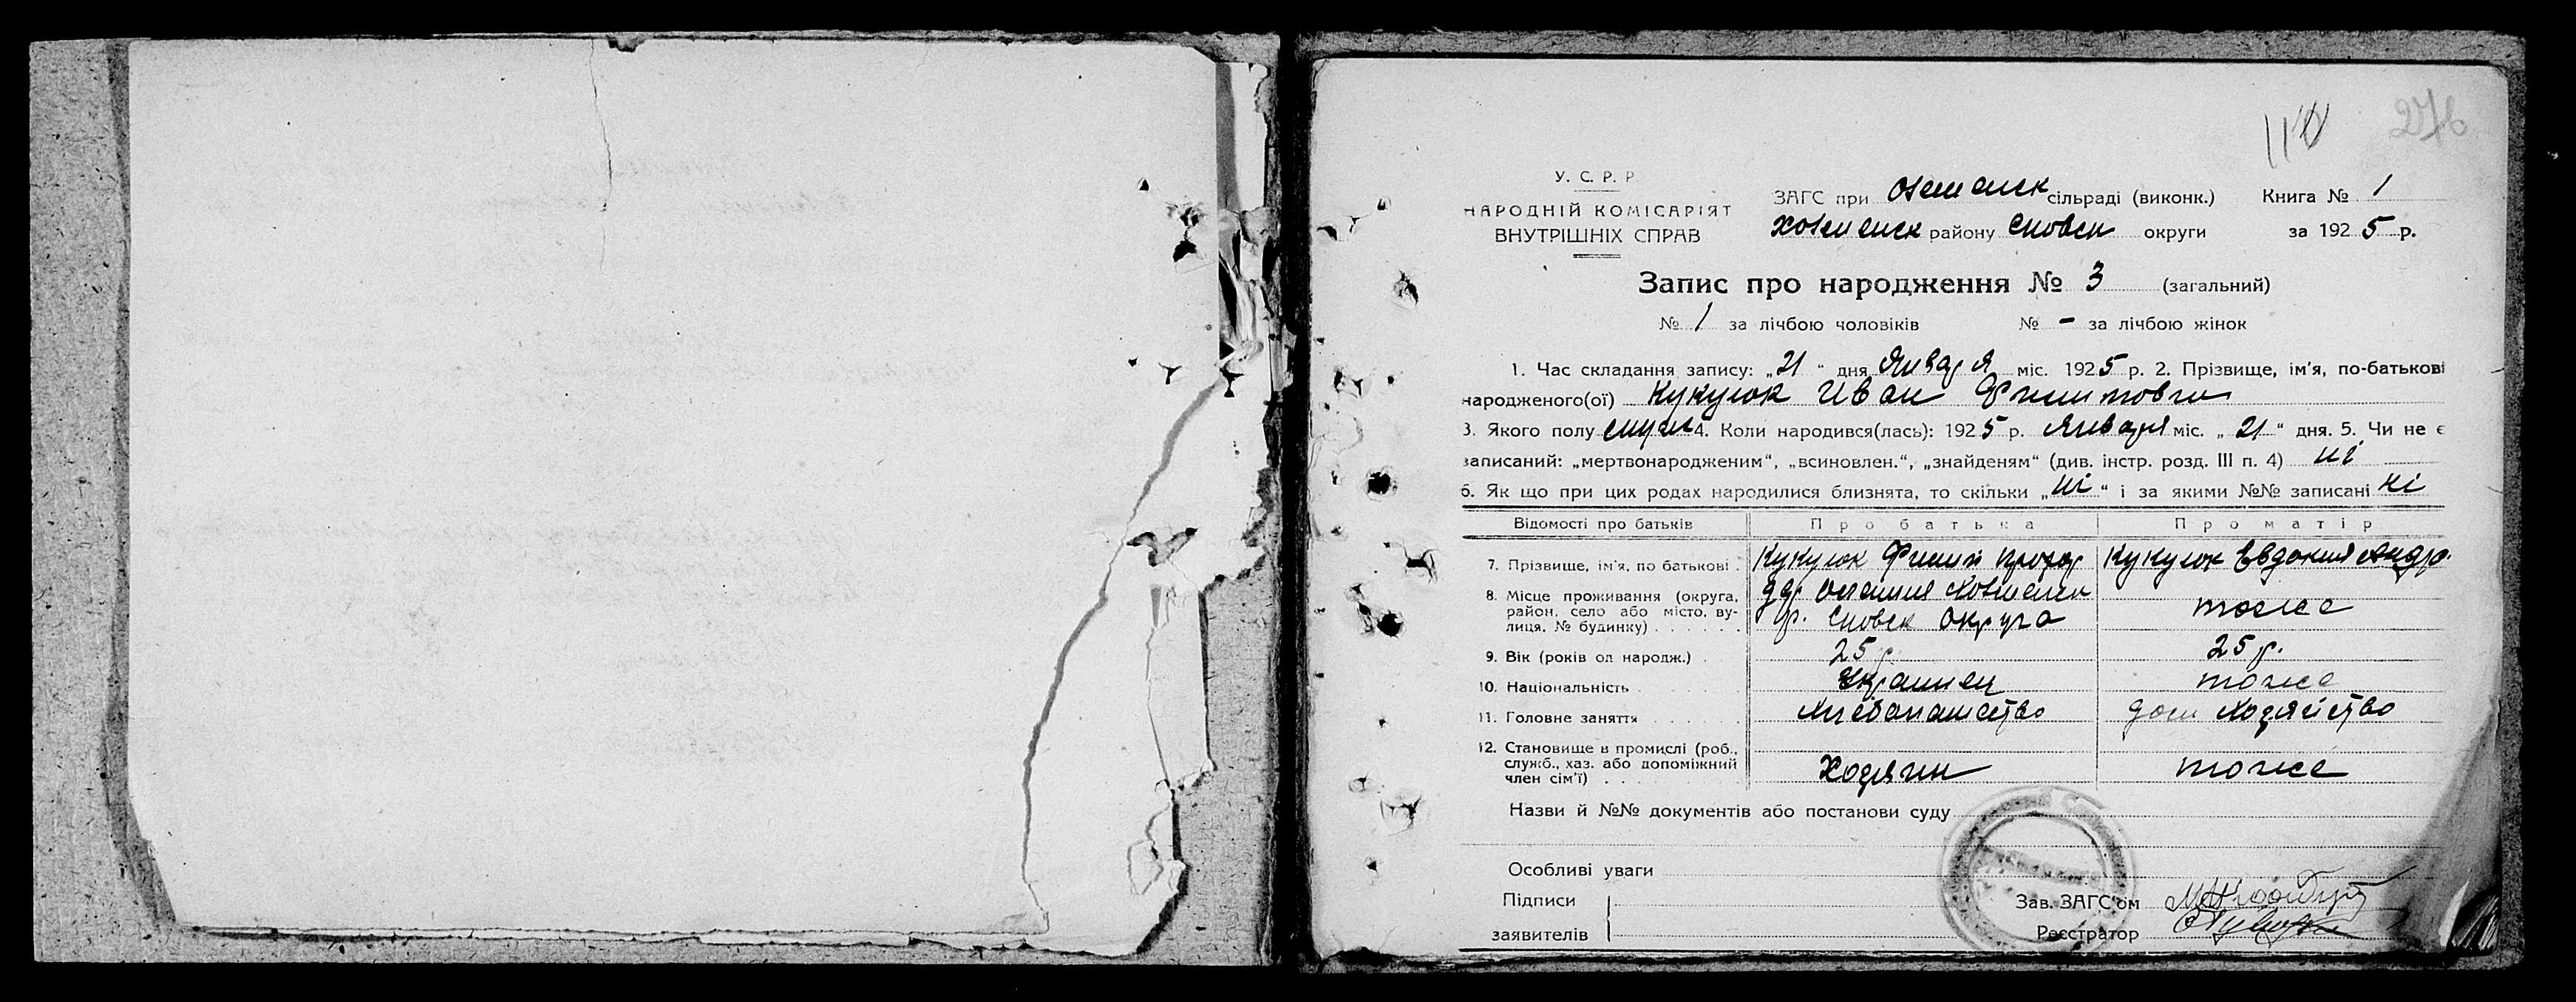 276
У. С. Р. Р.
НАРОДНІЙ КОМІСАРІЯТ
ВНУТРІШНІХ СПРАВ
ЗАГС при сільраді (виконк.) Книга № 1
району Сновск округи за 1925 р.
Запис про народження № 3 (загальний)
№ 1 за лічбою чоловіків № - за лічбою жінок
1. Час складання запису: „21“ дня Января міс. 1925 р. 2. Прізвище, ім'я, по-батькові
народженого(ої) Кукуюк Иван
3. Якого полу 4. Коли народився(лась): 1925 р. Января міс. „21“ дня. 5. Чи не є
записаний: „мертвонародженим“, „всиновлен.“, „знайденям“ (див. інстр. розд. III п. 4) ні
6. Як що при цих родах народилися близнята, то скільки „ні“ і за якими №№ записані ні
Відомості про батьків Про батька Про матір
7. Прізвище, ім'я, по батькові Кукуюк Прохор Кукуюк Евдокия Андр.
8. Місце проживання (округа, район, село або місто, вулиця, № будинку) р. Сновск округа тоже
9. Вік (років од народж.) 25 р. 25 р.
10. Національність Украинец тоже
11. Головне заняття Хлебопашество дом хозяйство
12. Становище в промислі (роб., служб., хаз. або допоміжний член сім'ї) Хозяин тоже
Назви й №№ документів або постанови суду
Особливі уваги
Підписи Зав. ЗАГС'ом
заявителів Реєстратор